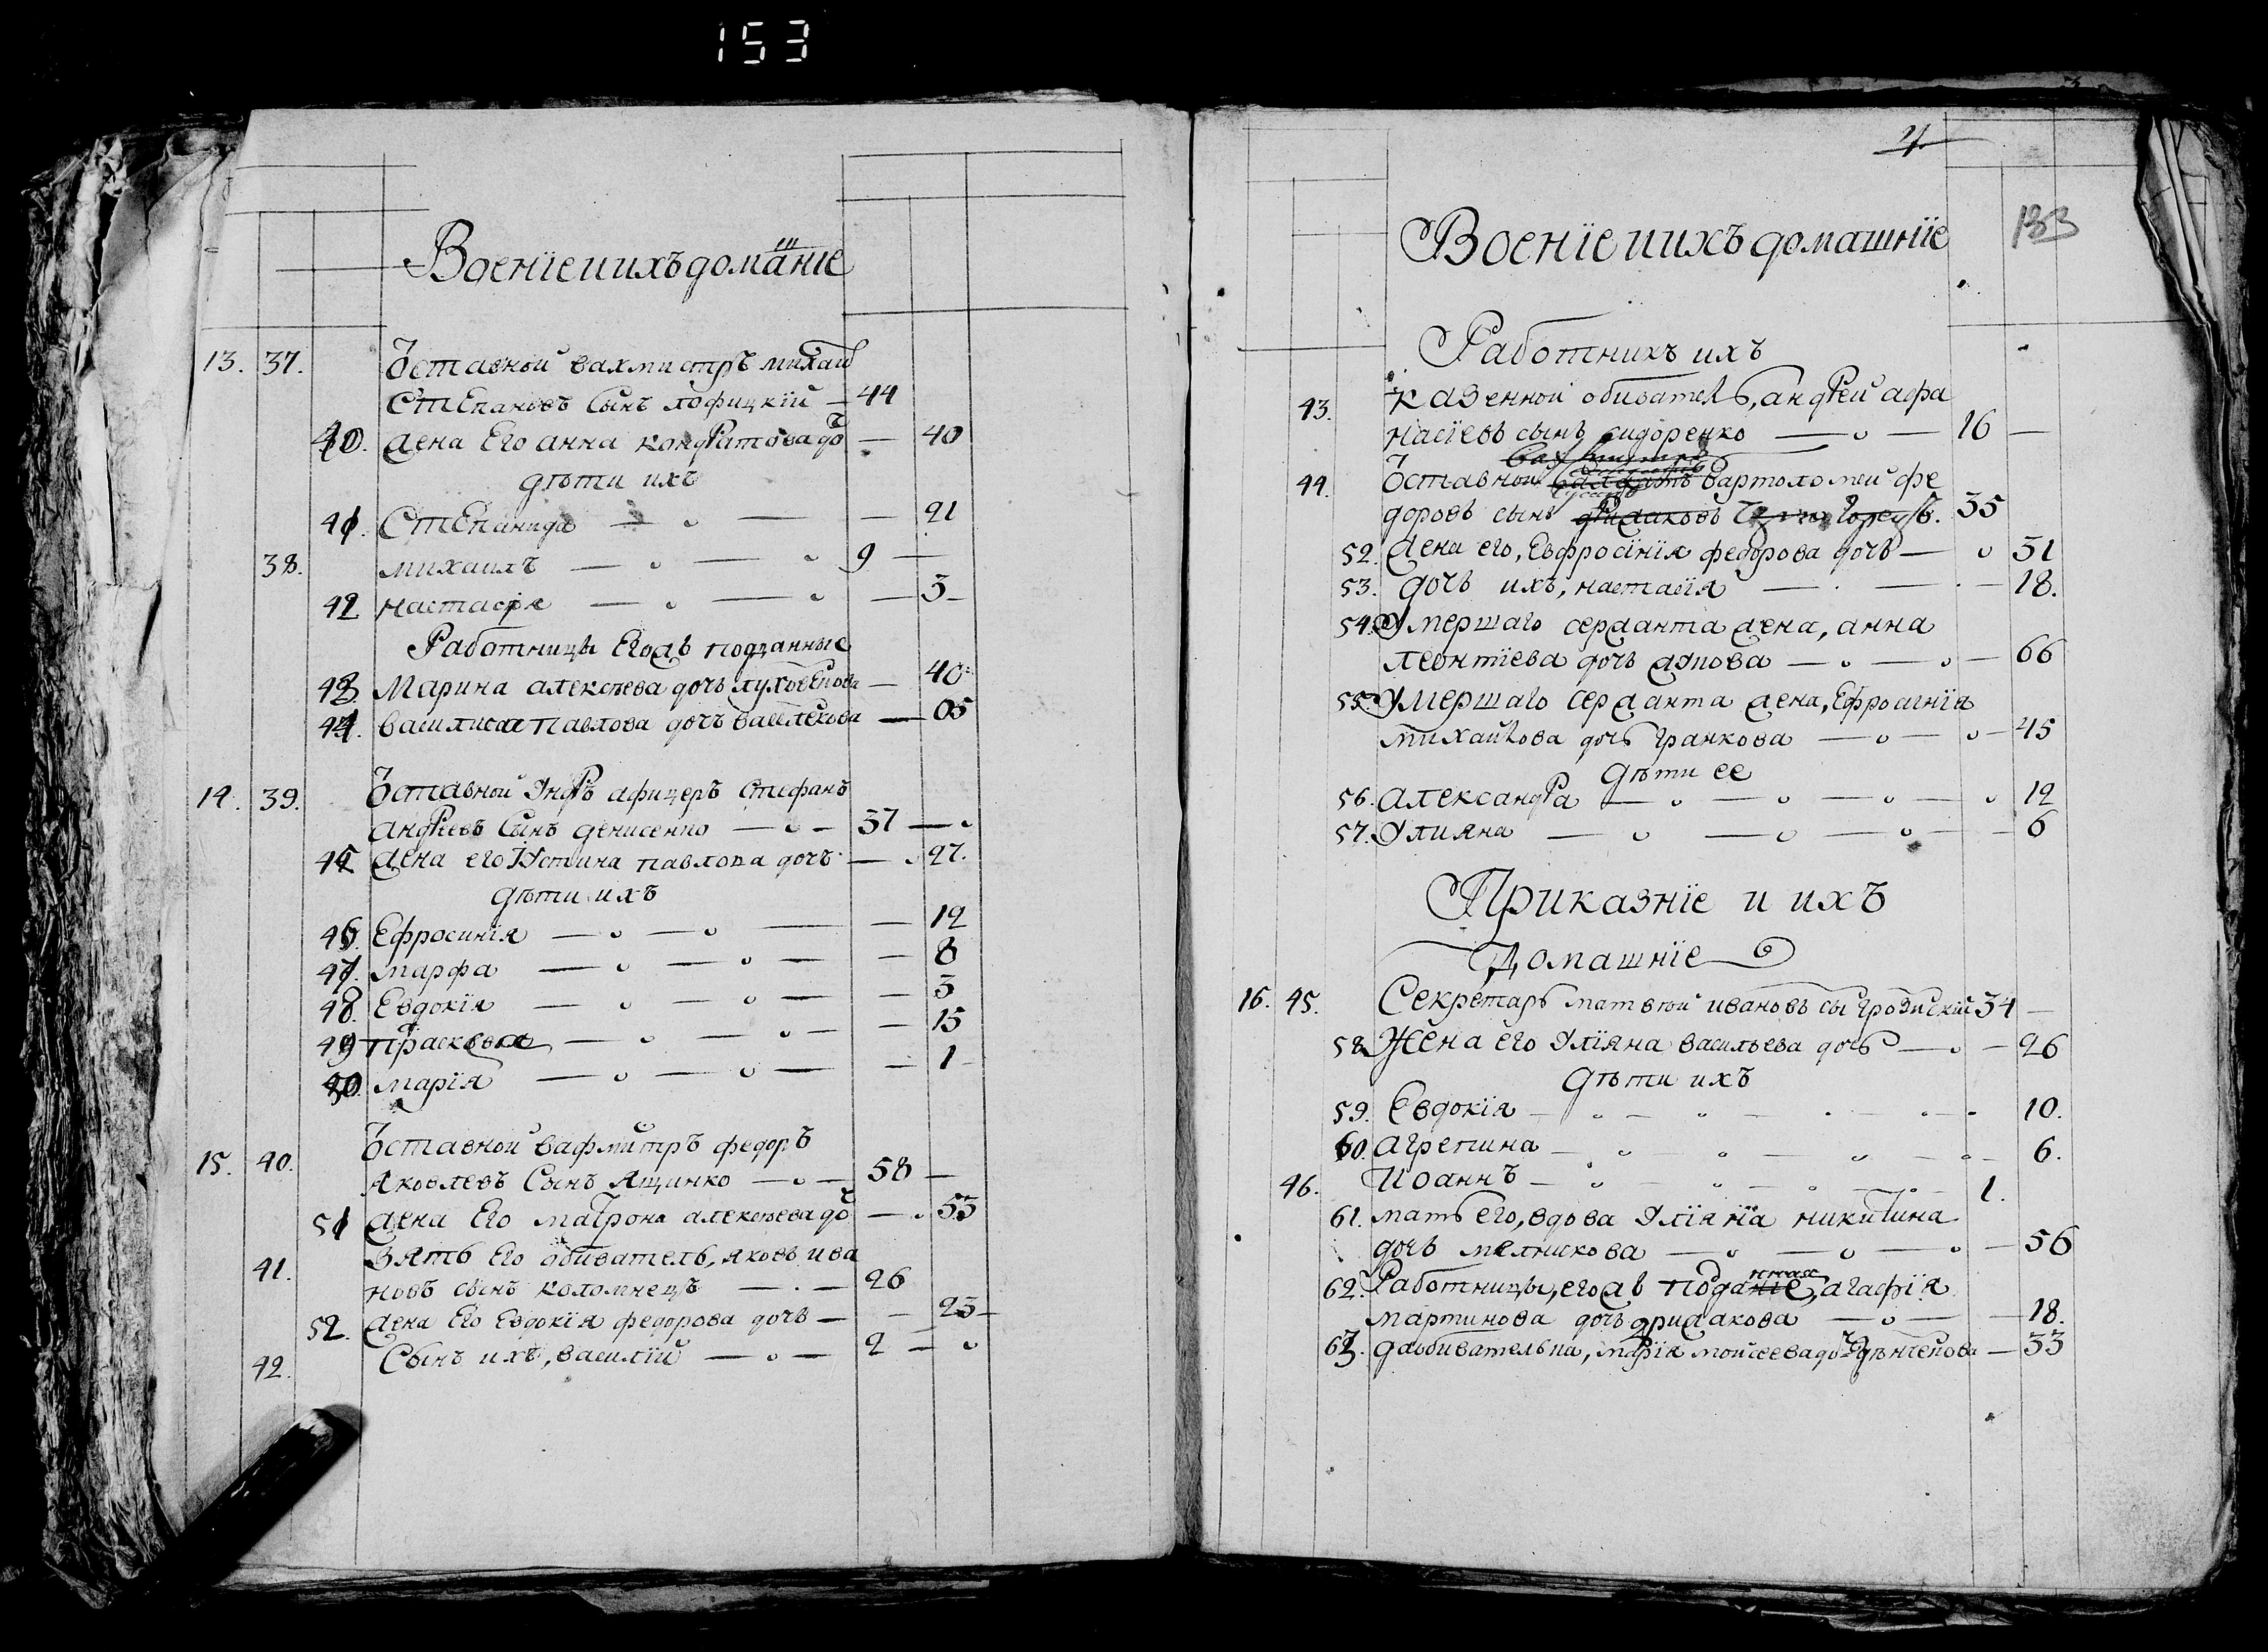 153
Военїе и ихъ доманіе
ш
13. 37. Ѿставной вахмистръ михаи
Степановъ Сынъ лофицкїй — 44
40. жена Его анна кондратова до — 40
дѣти ихъ
41. Степанида — 21
38. михаилъ — 9 —
42 настасїя — 3
Работницы Егожъ подданные
43. Марина алексѣева дочь — 40
44. василиса павлова дочь — 05
14. 39. Ѿставной Ундръ афицеръ Стефанъ
андреевъ Сынъ денисенко — 37 —
45 жена его Устина павлова дочъ — 27.
дѣти ихъ
46. Ефросинїя — 12
47. марфа — 8
48. Евдокїя — 3
49 Прасковя — 15
50. марїя — 1
15. 40. Ѿставной вафмитръ федоръ
яковлевъ Сынъ ящинко — 58 —
51 жена Его матрона алексѣева до — 53
41. Зять Его обиватель, яковъ ива
новъ сынъ коломнецъ — 26
52. жена Его Евдокїя федорова дочь — 23
42. Сынъ ихъ, василїй — 2 —
4.
133
Военїе и ихъ домашнїе
Работникъ ихъ
43. казенной обиватель, андрей афа
насїевъ сынъ сидоренко — 16 —
44. Ѿставной вартоломей фе
доровъ сынъ 35
52. жена его, Евфросїнїя федорова дочь — 51
53. дочь ихъ, настасїя — 18.
54. Умершаго сержанта жена, анна
леонтїева дочь — 66
55. Умершаго сержанта жена, Ефросинїя
михайлова дочь гранкова — 45
дѣти ее
56. александра — 12
57. Улияна — 6
Приказнїе и ихъ
Домашнїе
16. 45. Секретарь матвѣй ивановъ сы грозинскїй 34 —
58. Жена его Улїяна васильева дочь — 26
дѣти ихъ
59. Евдокїя — 10.
60. агрепина — 6.
46. Иоаннъ — 1.
61. мать его, вдова Улїянїа никитина
дочь мелникова — 56
62. Работницы, егожъ агафїя
мартинова дочь дрижакова — 18.
63. марїя мойсеева до — 33